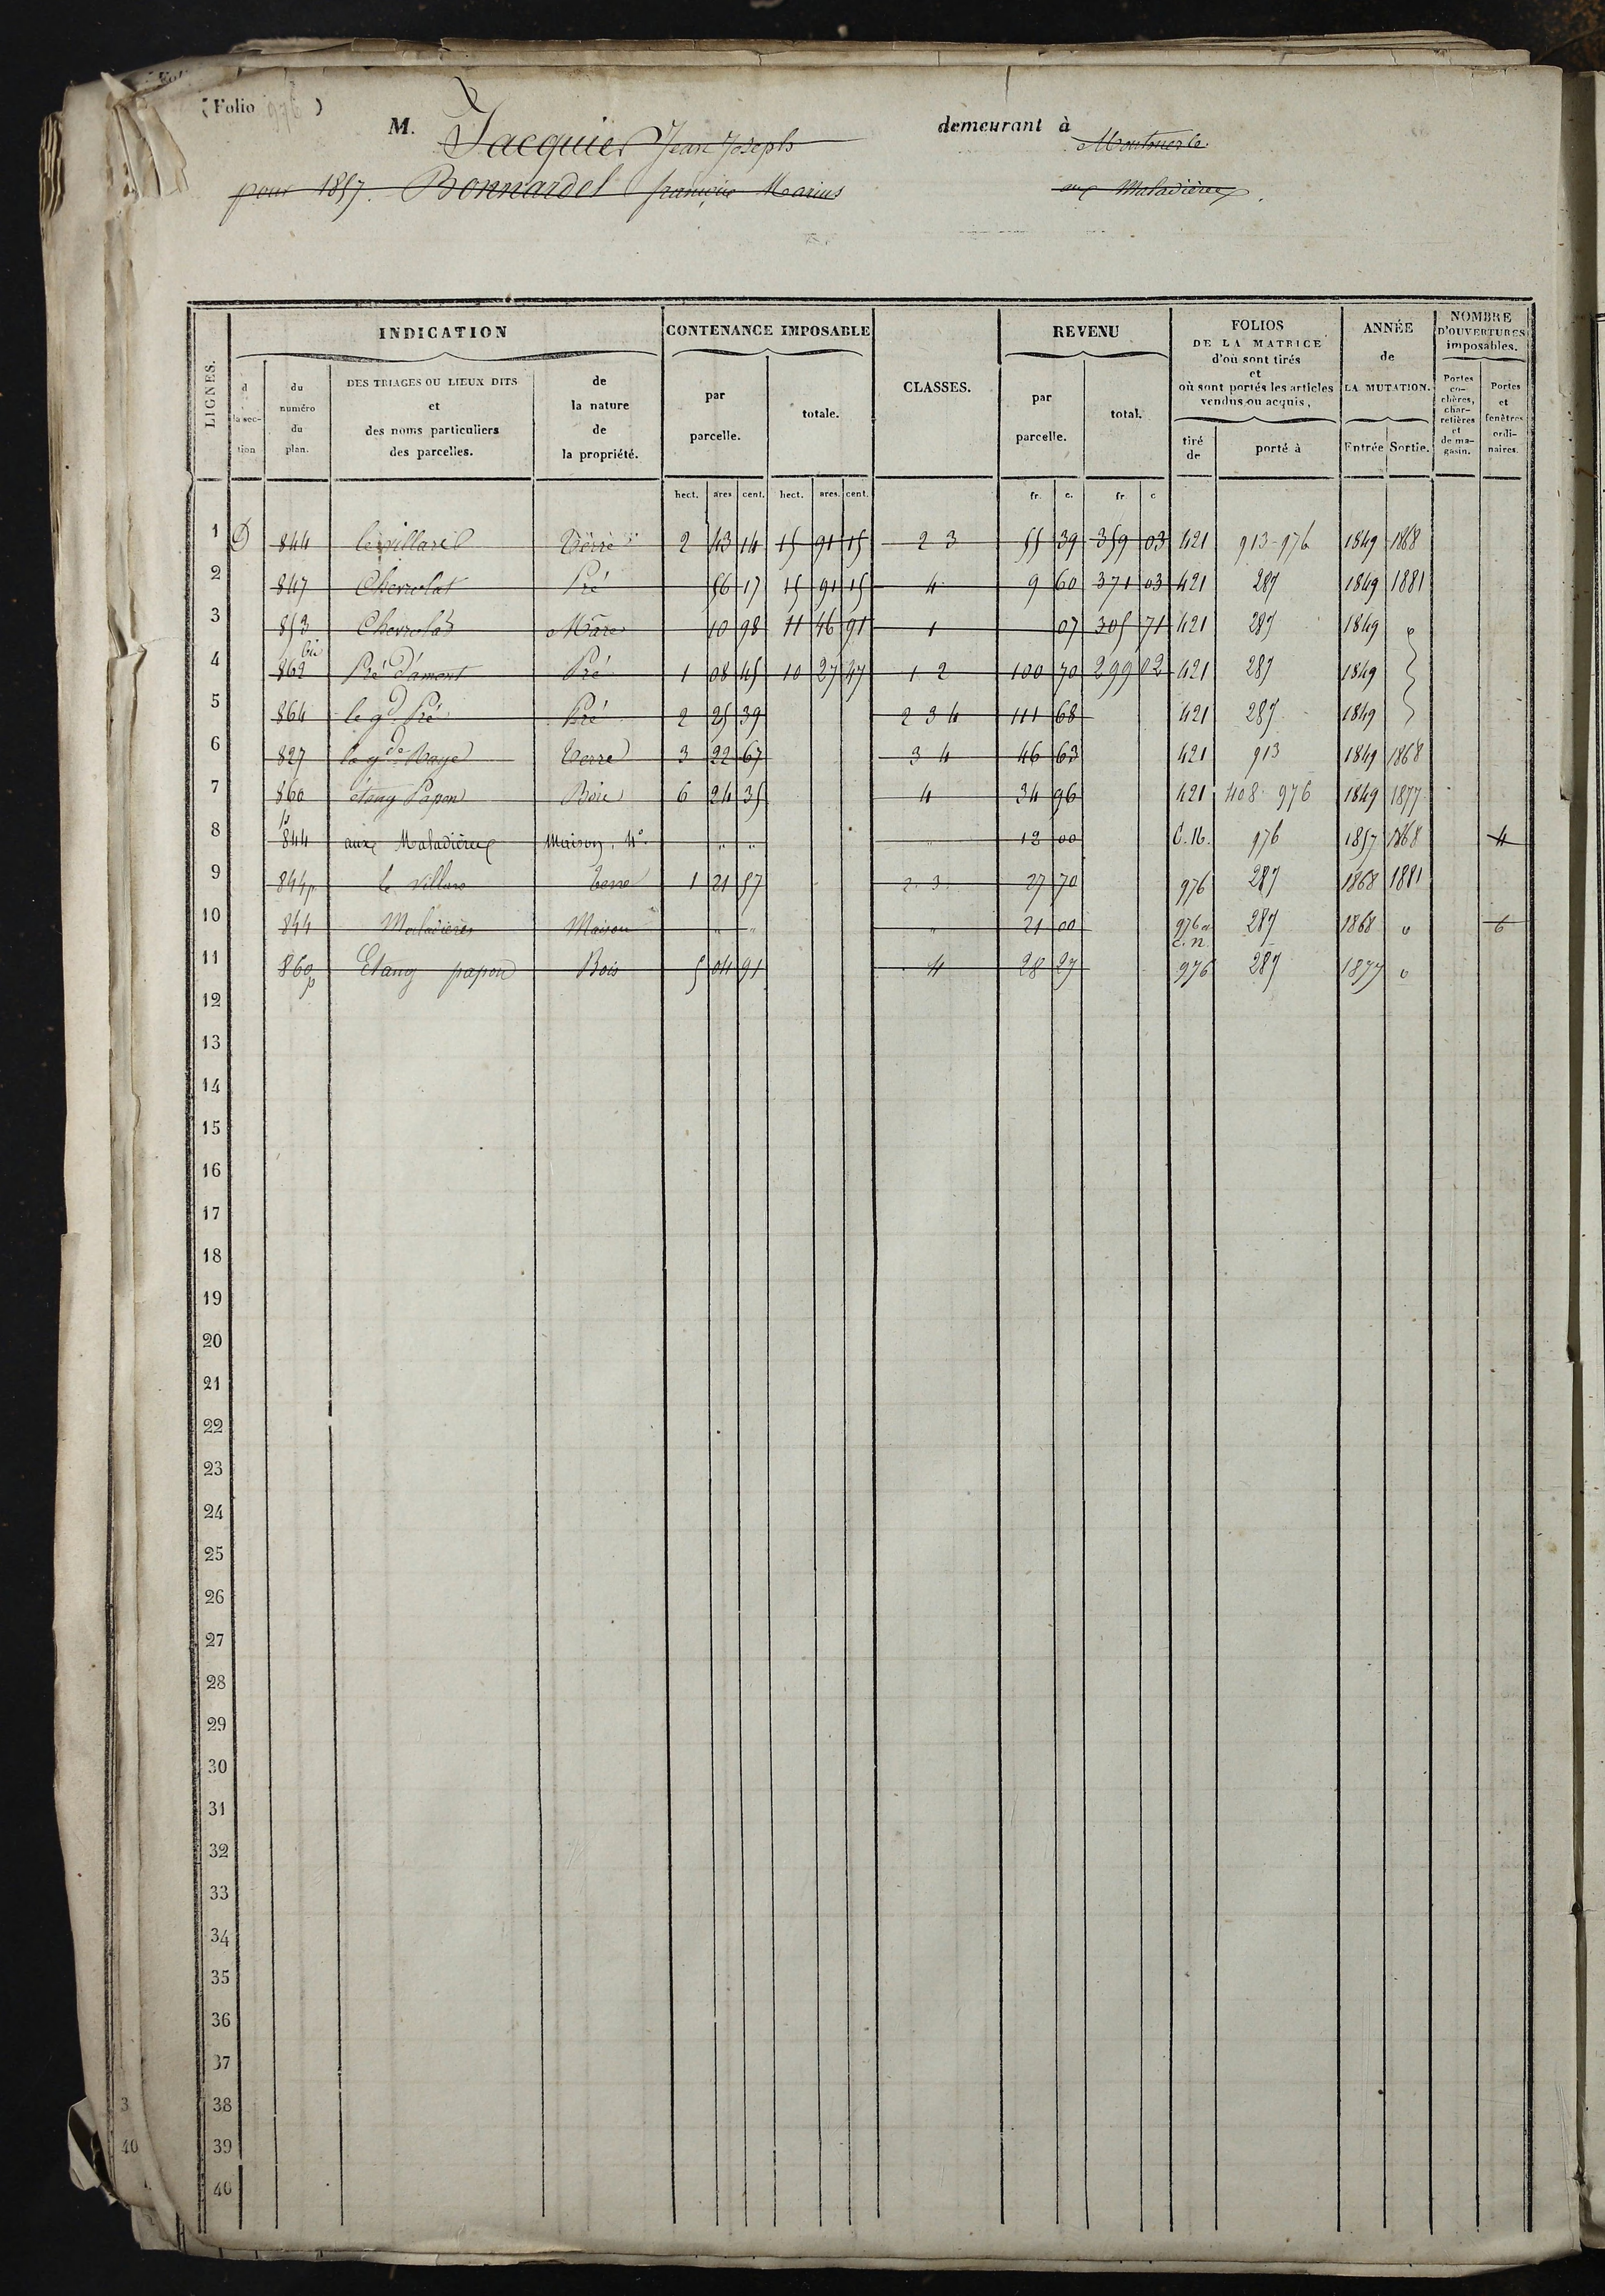 (Folio 976)
M. Jacquier Jean Joseph demeurant à Montmerle
pour 1857. Bonnardel françois Marius aux Maladières.
LIGNES. INDICATION CONTENANCE IMPOSABLE CLASSES. REVENU FOLIOS DE LA MATRICE d'où sont tirés et où sont portés les articles vendus ou acquis, ANNÉE de LA MUTATION. NOMBRE D'OUVERTURES imposables.
d la sec- tion du numéro du plan. DES TRIAGES OU LIEUX DITS et des noms particuliers des parcelles. de la nature de la propriété. par parcelle. totale. par parcelle. total. tiré de porté à Entrée Sortie. Portes co- chères, char- retières et de ma- gasin. Portes et fenêtres ordi- naires.
hect. ares cent. hect. ares. cent. fr. c. fr c
1 D 844 le villard Terre 2 43 14 15 91 15 2 3 55 39 359 03 421 913-976 1849 1868
2 847 Chevrolat Pré 56 17 15 91 15 4 9 60 371 03 421 287 1849 1881
3 853 Chevrolat Mare 10 98 11 46 91 1 07 305 71 421 287 1849
4 862 bis Pré d'amont Pré 1 08 45 10 27 47 1 2 100 70 299 02 421 287 1849
5 864 le gd Pré Pré 2 25 39 2 3 4 111 68 421 287 1849
6 827 la gde Raye Terre 3 22 67 3 4 46 63 421 913 1849 1868
7 860 étang Papon Bois 6 24 35 4 34 96 421 408 976 1849 1877
8 844 aux Maladières Maison. 4e. " " " 12 00 C. N. 976 1857 1868 4
9 844p le Villard Terre 1 21 57 2. 3. 27 70 976 287 1868 1881
10 844 Maladières Maison " " " 21 00 976 et C. N. 287 1868 " 6
11 860p Etang papon Bois 5 04 91 4 28 27 976 287 1877 "
12
13
14
15
16
17
18
19
20
21
22
23
24
25
26
27
28
29
30
31
32
33
34
35
36
37
3 38
40 39
40